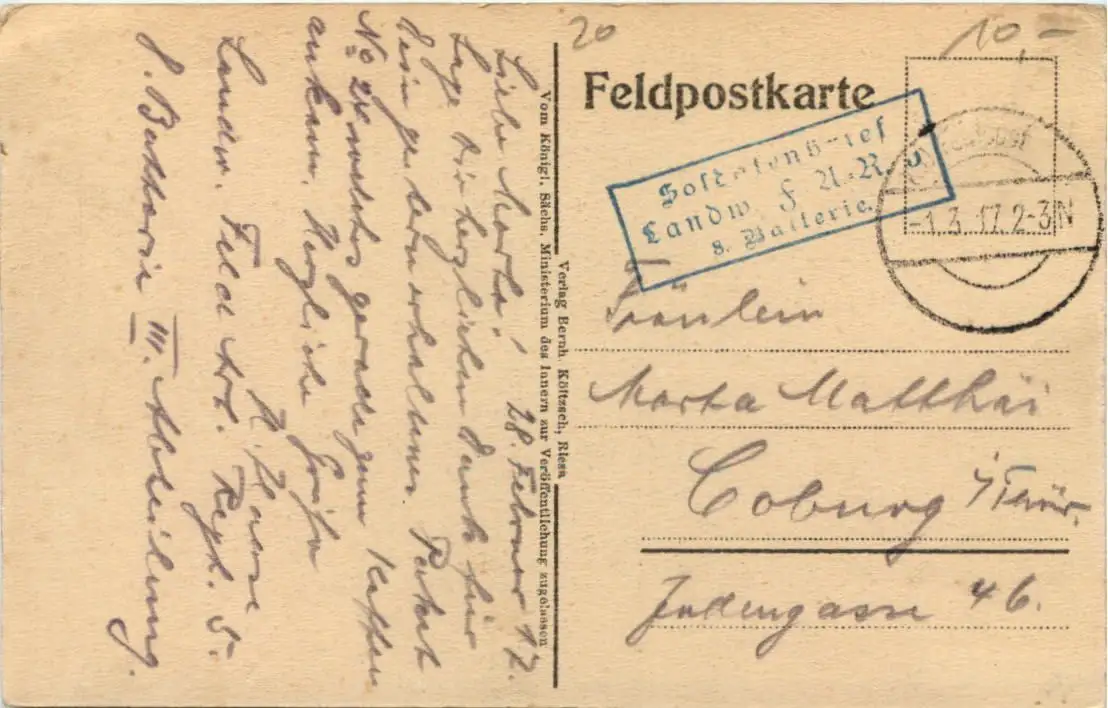 20
10,-
Feldpostkarte
Soldatenbrief
Landw. F A.-R. 5
8. Batterie.
-1.3.17.2-3N
Fräulein
Marta Matthäi
Coburg i/Thür.
Judengasse 46.
Verlag Bernh. Köttzsch, Riesa
Vom Königl. Sächs. Ministerium des Innern zur Veröffentlichung zugelassen
28. Februar 17.
Liebe Marta!
Sage Dir herzlichen Dank für
Dein gestern erhaltenes Paket
No 2 gerade zum Kaffee
ankam. Herzliche Grüße
Landw. Feld Art. Regt. 5.
8. Batterie III. Abteilung.